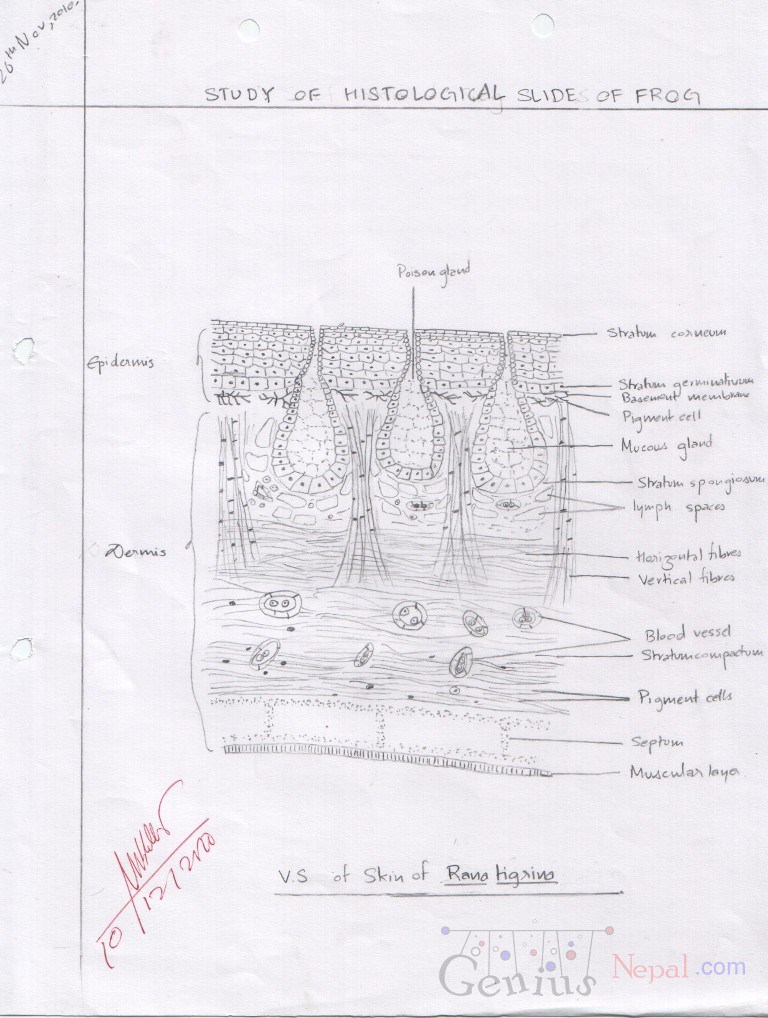 26th Nov, 2010.
STUDY OF HISTOLOGICAL SLIDES OF FROG
Poison gland
Stratum corneum
Epidermis
Stratum germinativum
Basement membrane
Pigment cell
Mucous gland
Stratum spongiosum
lymph spaces
Dermis
Horizontal fibres
Vertical fibres
Blood vessel
Stratum compactum
Pigment cells
Septum
Muscular layer
10/12/2010
V.S of Skin of Rana tigrina
Genius Nepal.com